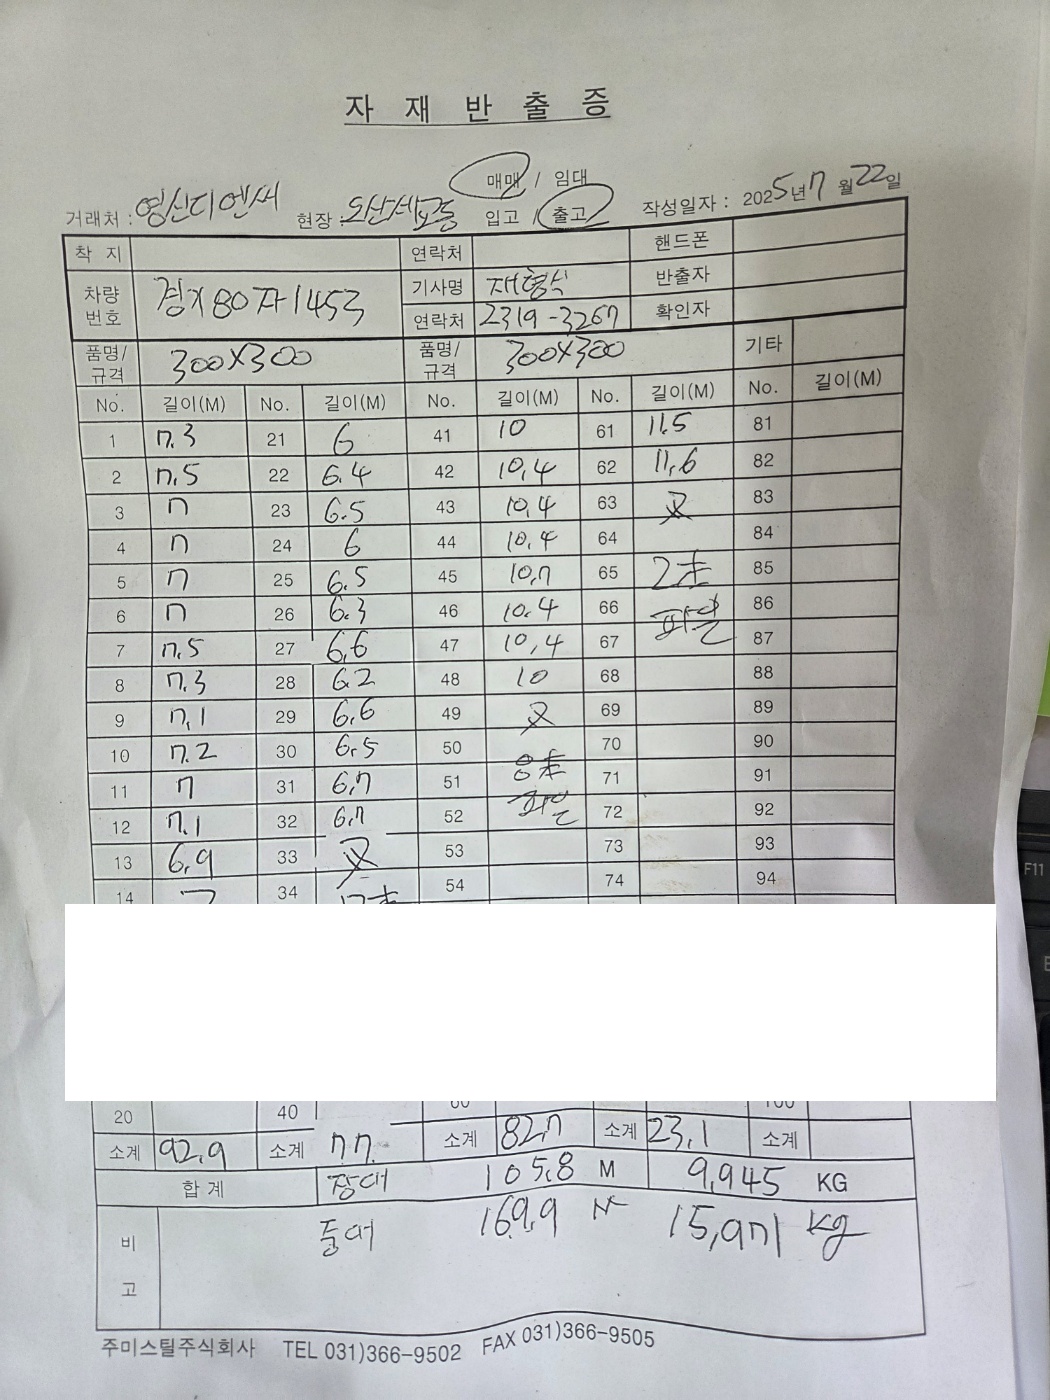 자 재 반 출 증
매매 / 임대
거래처 : 영신디엔씨 현장 : 오산세교동 입고 / 출고 작성일자 : 2025년 7월 22일
착 지 연락처 핸드폰
차량 번호 경기80자1453 기사명 반출자
연락처 2319-3267 확인자
품명/규격 300X300 품명/규격 300X300 기타
No. 길이(M) No. 길이(M) No. 길이(M) No. 길이(M) No. 길이(M)
1 7.3 21 6 41 10 61 11.5 81
2 7.5 22 6.4 42 10.4 62 11.6 82
3 7 23 6.5 43 10.4 63 83
4 7 24 6 44 10.4 64 84
5 7 25 6.5 45 10.7 65 2本 85
6 7 26 6.3 46 10.4 66 파일 86
7 7.5 27 6.6 47 10.4 67 87
8 7.3 28 6.2 48 10 68 88
9 7.1 29 6.6 49 69 89
10 7.2 30 6.5 50 70 90
11 7 31 6.7 51 8本 71 91
12 7.1 32 6.7 52 파일 72 92
13 6.9 33 53 73 93
14 34 54 74 94
20 40 60 100
소계 92.9 소계 77. 소계 82.7 소계 23.1 소계
합 계 장대 105.8 M 9,945 KG
비 고 중대 169.9 M 15,971 kg
주미스틸주식회사 TEL 031)366-9502 FAX 031)366-9505